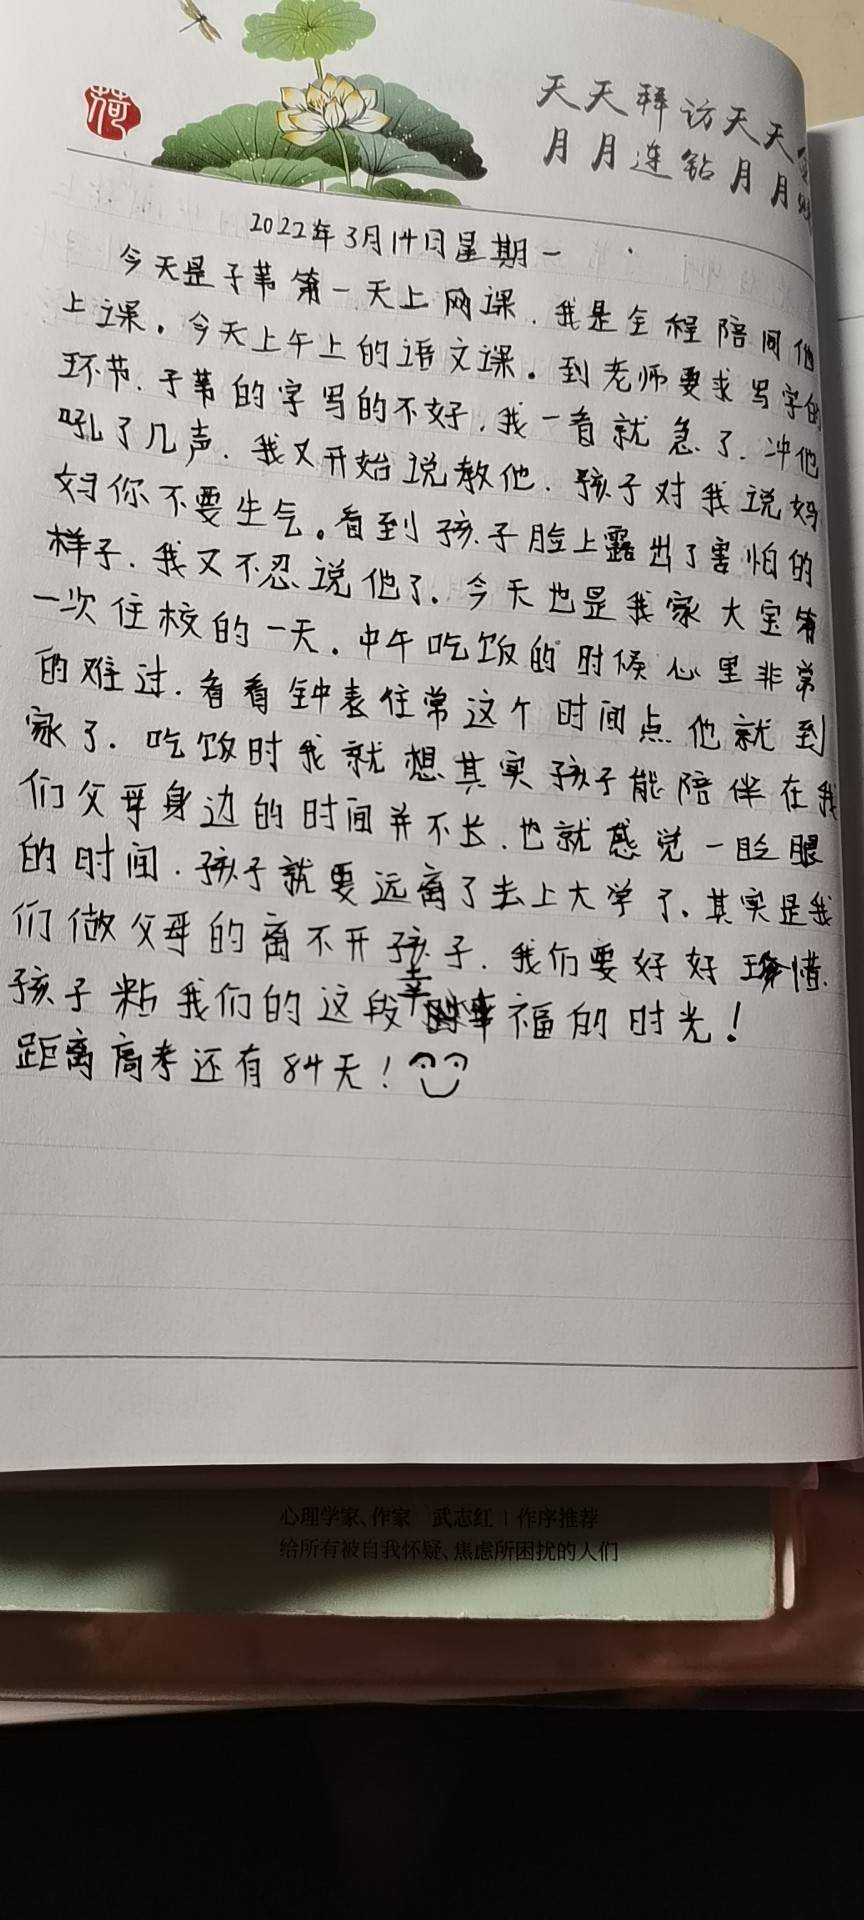 荷
天天拜访天天
月月连钻月月
2022年3月14日星期一
今天是子苇第一天上网课.我是全程陪同他
上课。今天上午上的语文课。到老师要求写字的
环节.子苇的字写的不好.我一看就急了.冲他
吼了几声.我又开始说教他.孩子对我说妈
妈你不要生气。看到孩子脸上露出了害怕的
样子.我又不忍说他了.今天也是我家大宝第
一次住校的一天.中午吃饭的时候心里非常
的难过.看看钟表住常这个时间点他就到
家了.吃饭时我就想其实孩子能陪伴在我
们父母身边的时间并不长.也就感觉一眨眼
的时间.孩子就要远离了去上大学了.其实是我
们做父母的离不开孩子.我们要好好珍惜.
孩子粘我们的这段幸福的时光!
距离高考还有84天!
心理学家、作家 武志红 | 作序推荐
给所有被自我怀疑、焦虑所困扰的人们